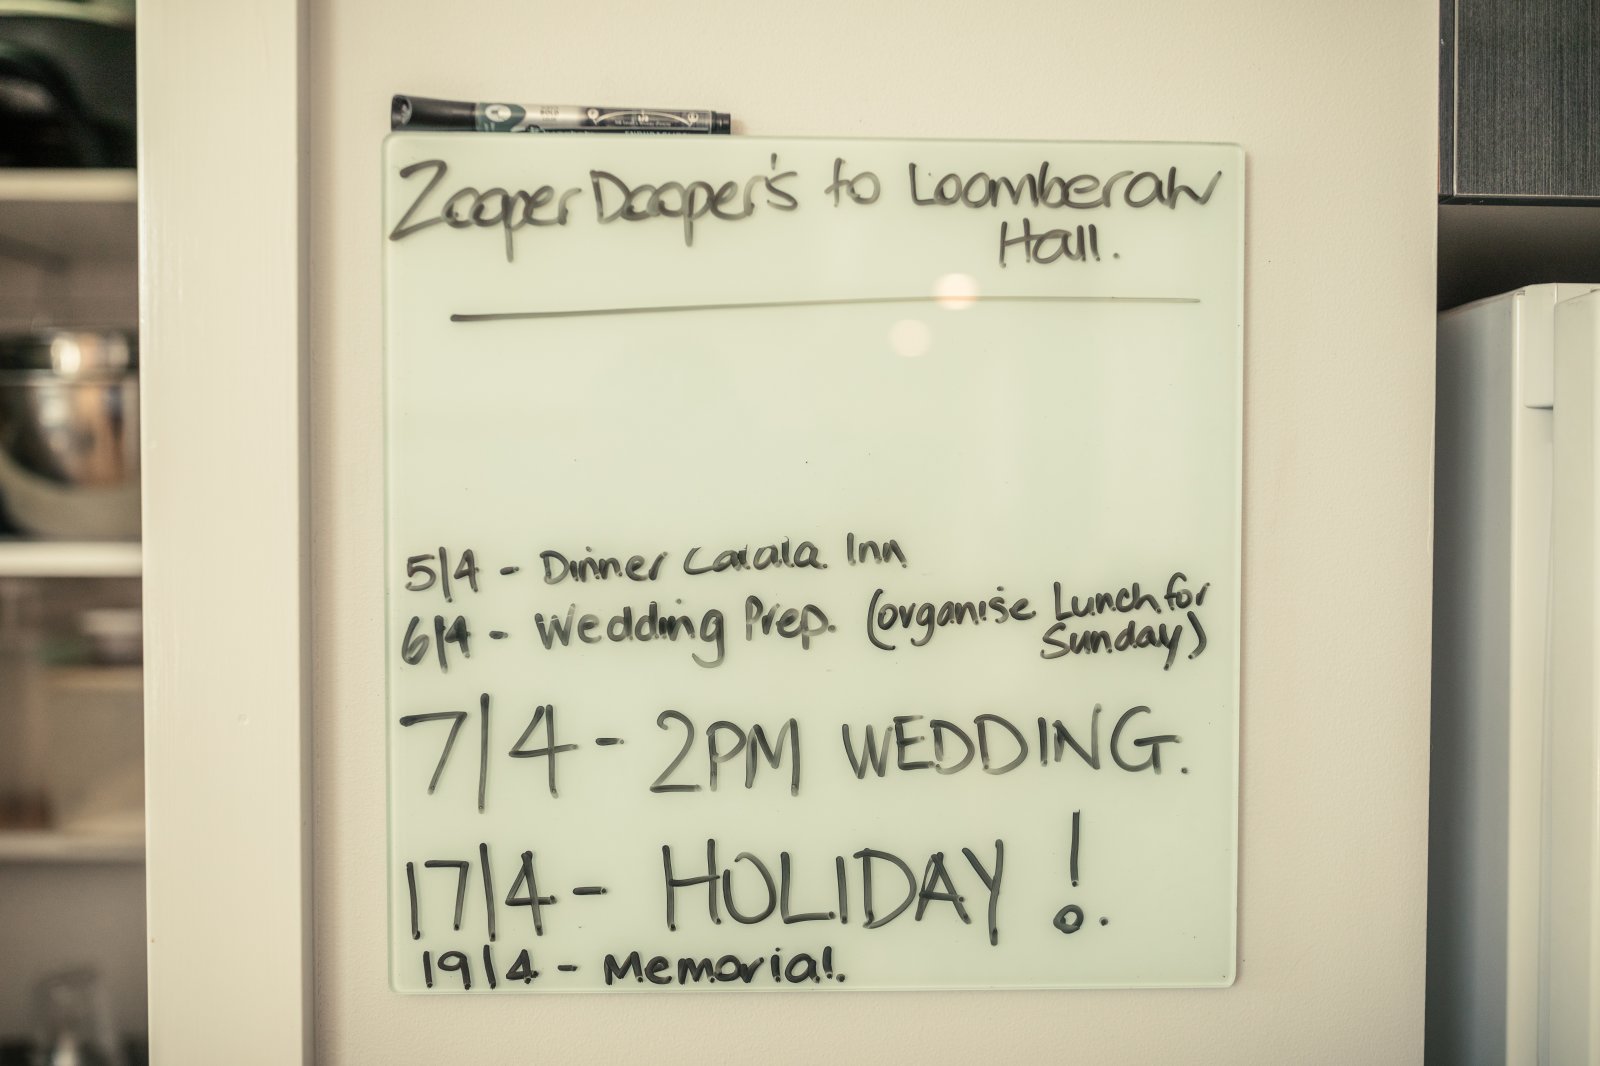 Zooper Dooper's to Loomberah
Hall.
5/4 - Dinner Calala Inn
6/4 - Wedding Prep. (organise Lunch for
Sunday)
7/4 - 2PM WEDDING.
17/4 - HOLIDAY !.
19/4 - Memorial.